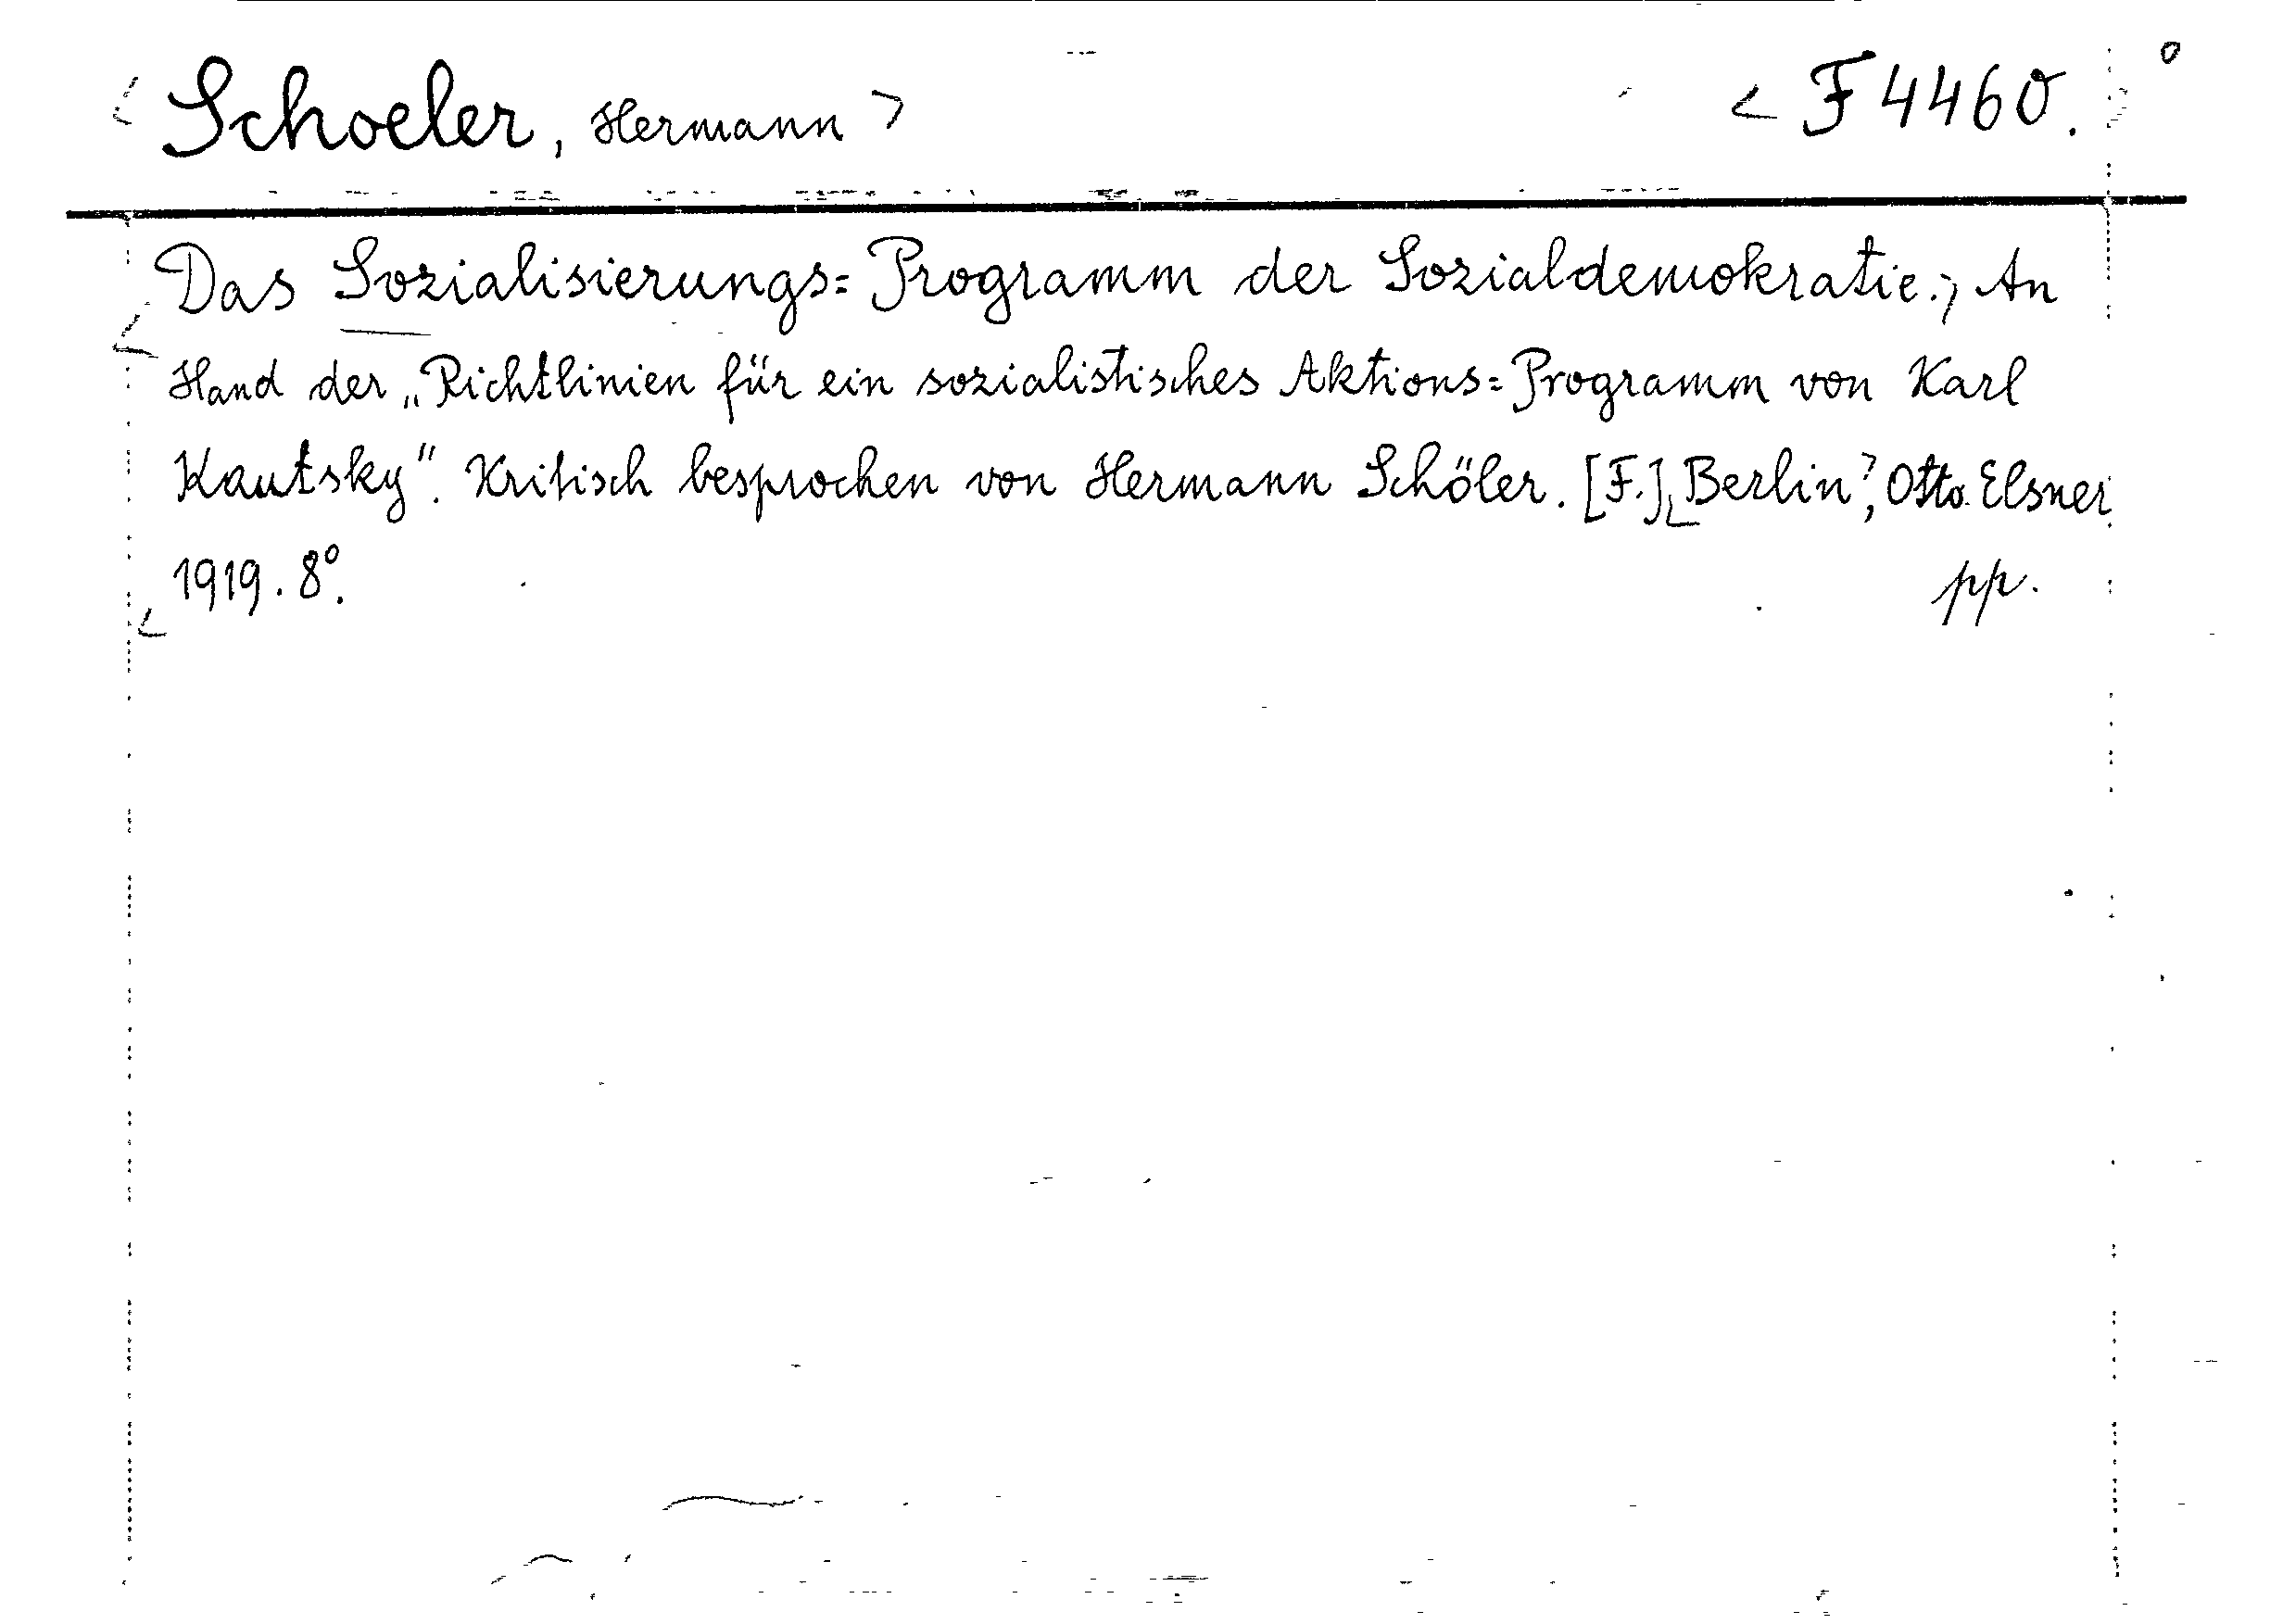 Schoeler, Hermann F 4460.
Das Sozialisierungs=Programm der Sozialdemokratie. An
Hand der „Richtlinien für ein sozialistisches Aktions=Programm von Karl
Kautsky". Kritisch besprochen von Hermann Schöler. [F.] Berlin, Otto Elsner
1919. 8°.
pp.